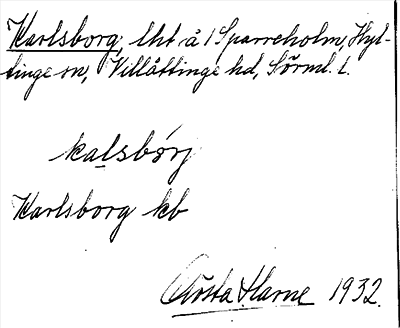 Karlsborg, lht å 1 Sparreholm, Hyl-
tinge sn, Villåttinge hd, Sörml. l.
kalsbörj
Karlsborg kb
Gösta Harne 1932.